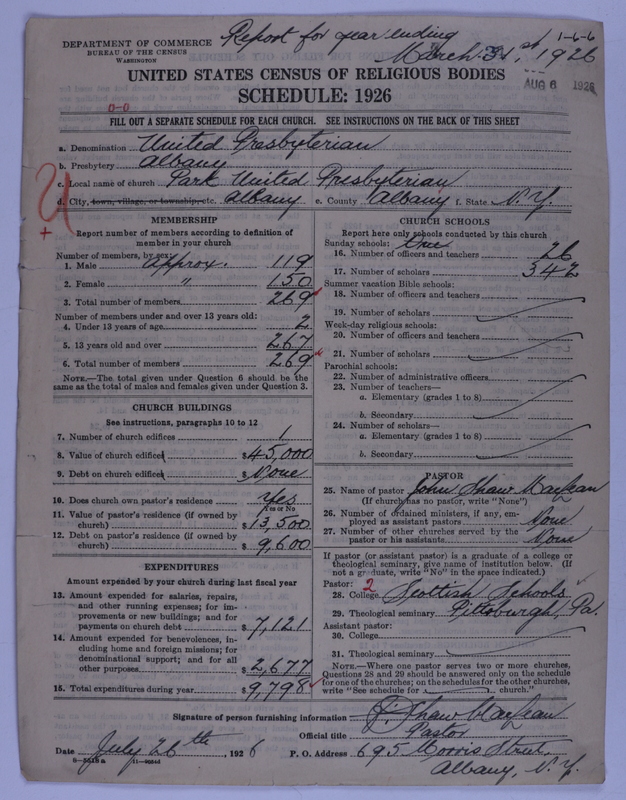 Report for year ending
March 31,st 1926
1-6-6
DEPARTMENT OF COMMERCE
BUREAU OF THE CENSUS
WASHINGTON
UNITED STATES CENSUS OF RELIGIOUS BODIES
AUG 6 1926
SCHEDULE: 1926
0-0
FILL OUT A SEPARATE SCHEDULE FOR EACH CHURCH. SEE INSTRUCTIONS ON THE BACK OF THIS SHEET
a. Denomination United Presbyterian
b. Presbytery Albany
c. Local name of church Park United Presbyterian
d. City, town, village, or township, etc. Albany e. County Albany f. State N. Y.
MEMBERSHIP
Report number of members according to definition of
member in your church
Number of members, by sex:
1. Male Approx. 119
2. Female " 150
3. Total number of members 269
Number of members under and over 13 years old:
4. Under 13 years of age 2
5. 13 years old and over 267
6. Total number of members 269
NOTE.—The total given under Question 6 should be the
same as the total of males and females given under Question 3.
CHURCH BUILDINGS
See instructions, paragraphs 10 to 12
7. Number of church edifices 1
8. Value of church edifices $ 45,000
9. Debt on church edifices $ None
10. Does church own pastor's residence Yes
Yes or No
11. Value of pastor's residence (if owned by
church) $ 13,500
12. Debt on pastor's residence (if owned by
church) $ 9,600
EXPENDITURES
Amount expended by your church during last fiscal year
13. Amount expended for salaries, repairs,
and other running expenses; for im-
provements or new buildings; and for
payments on church debt $ 7,121
14. Amount expended for benevolences, in-
cluding home and foreign missions; for
denominational support; and for all
other purposes $ 2,677
15. Total expenditures during year $ 9,798
CHURCH SCHOOLS
Report here only schools conducted by this church
Sunday schools:
16. Number of officers and teachers 26
17. Number of scholars 342
Summer vacation Bible schools:
18. Number of officers and teachers
19. Number of scholars
Week-day religious schools:
20. Number of officers and teachers
21. Number of scholars
Parochial schools:
22. Number of administrative officers
23. Number of teachers—
a. Elementary (grades 1 to 8)
b. Secondary
24. Number of scholars—
a. Elementary (grades 1 to 8)
b. Secondary
PASTOR
25. Name of pastor John Shaw
(If church has no pastor, write "None")
26. Number of ordained ministers, if any, em-
ployed as assistant pastors None
27. Number of other churches served by the
pastor or his assistants None
If pastor (or assistant pastor) is a graduate of a college or
theological seminary, give name of institution below. (If
not a graduate, write "No" in the space indicated.)
Pastor: 2
28. College Scottish Schools
29. Theological seminary Pittsburgh, Pa.
Assistant pastor:
30. College
31. Theological seminary
NOTE.—Where one pastor serves two or more churches,
Questions 28 and 29 should be answered only on the schedule
for one of the churches; on the schedules for the other churches,
write "See schedule for church."
Signature of person furnishing information J. Shaw
Official title Pastor
Date July 26th, 1926 P. O. Address 695 Morris Street,
Albany, N. Y.